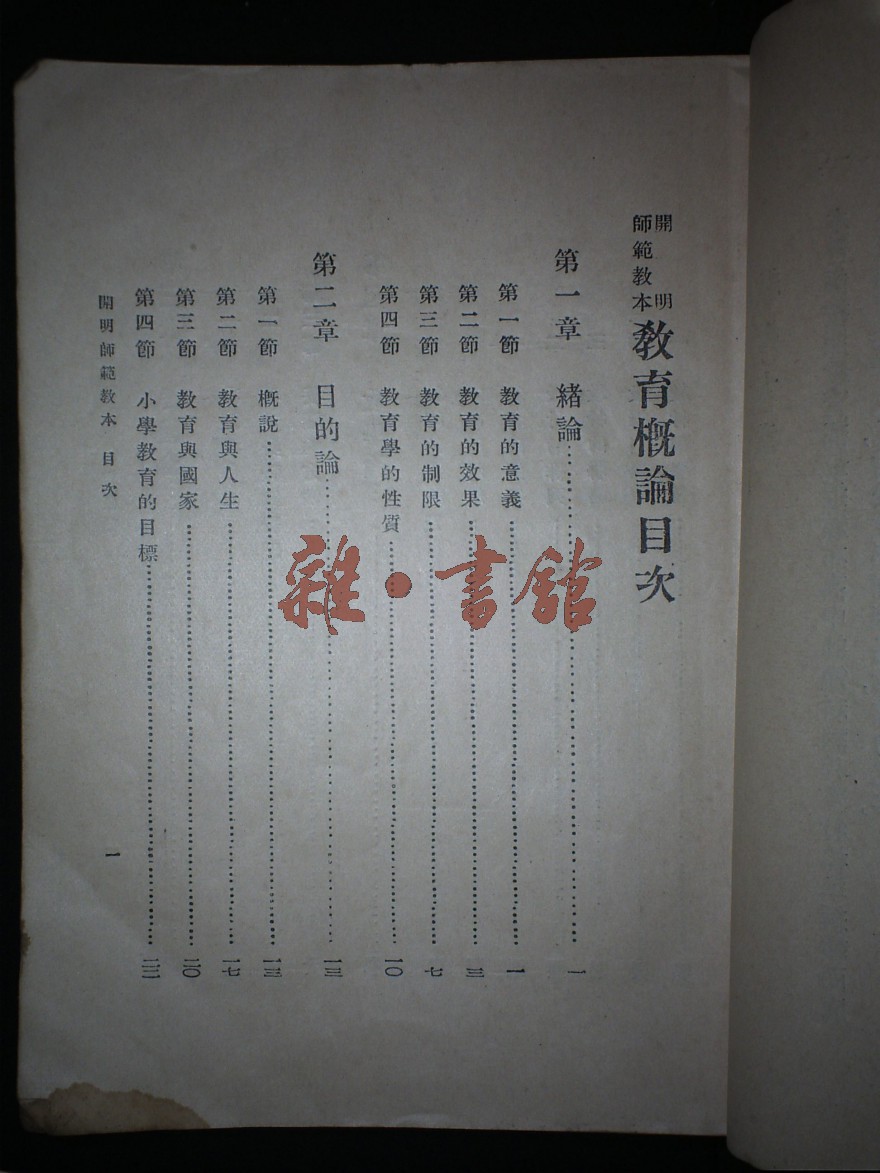 開明師範教本 教育概論目次
第一章 緒論……………一
第一節 教育的意義……………一
第二節 教育的效果……………三
第三節 教育的制限……………七
第四節 教育學的性質……………一〇
第二章 目的論……………一三
第一節 概說……………一三
第二節 教育與人生……………一七
第三節 教育與國家……………二〇
第四節 小學教育的目標……………二二
開明師範教本 目次 一
雜·書館